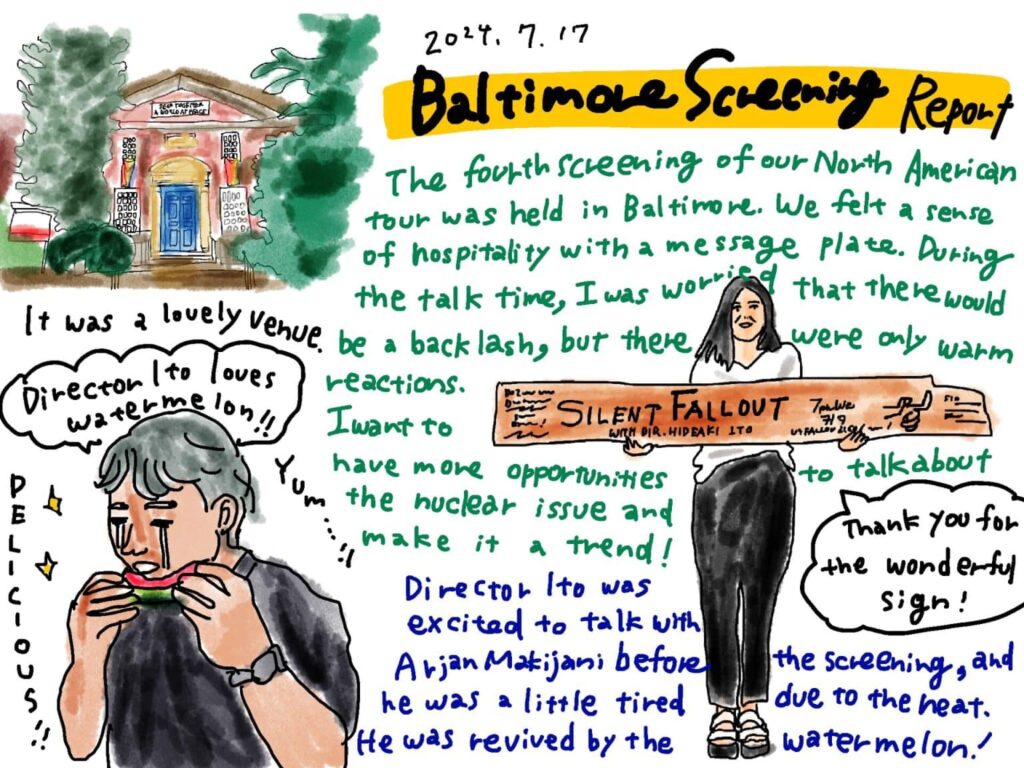 2024. 7. 17
Baltimore Screening Report
The fourth screening of our North American
tour was held in Baltimore. We felt a sense
of hospitality with a message plate. During
the talk time, I was worried that there would
be a backlash, but there were only warm
reactions.
I want to
have more opportunities to talk about
the nuclear issue and
make it a trend!
It was a lovely venue.
Director Ito loves
watermelon!!
DELICIOUS!!
Yum....!!
SILENT FALLOUT
WITH DIR. HIDEAKI ITO
Thank you for
the wonderful
sign!
Director Ito was
excited to talk with
Arjan Makijani before the screening, and
he was a little tired due to the heat.
He was revived by the watermelon!